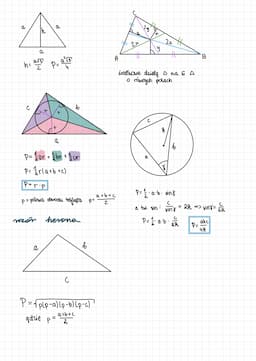 a
a
h
a
h = a√3/2 P = a²√3/4
C
A
B
2y
y
2x
x
środkowe dzielą Δ na 6 Δ
o równych polach
b
a
r
r
r
P = ½ar + ½br + ½cr
P = ½r(a+b+c)
P = r·p
p = połowa obwodu trójkąta p = a+b+c/2
c
b
a
R
γ
P = ½·a·b·sinγ
z tw. sin: c/sinγ = 2R ⇒ sinγ = c/2R
P = ½·a·b·c/2R
P = abc/4R
wzór herona
a
b
c
P = √p(p-a)(p-b)(p-c)
gdzie p = a+b+c/2